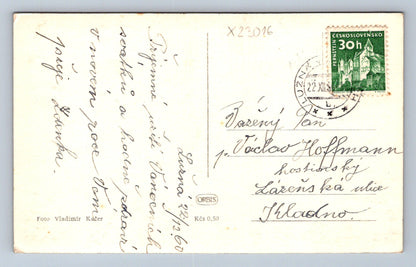 X23016
ČESKOSLOVENSKO
30h
PERNŠTEJN
LUŽNÁ
22.XII.
Lužná 22/12 60
Příjemné prožití Vánočních
svátků a hodně zdraví
v novém roce Vám
přeje Zdenka.
Vážený Pan
p. Václav Hoffmann
hostinský
Lázeňská ulice
Kladno.
ORBIS
Foto Vladimír Kučer
Kčs 0,50